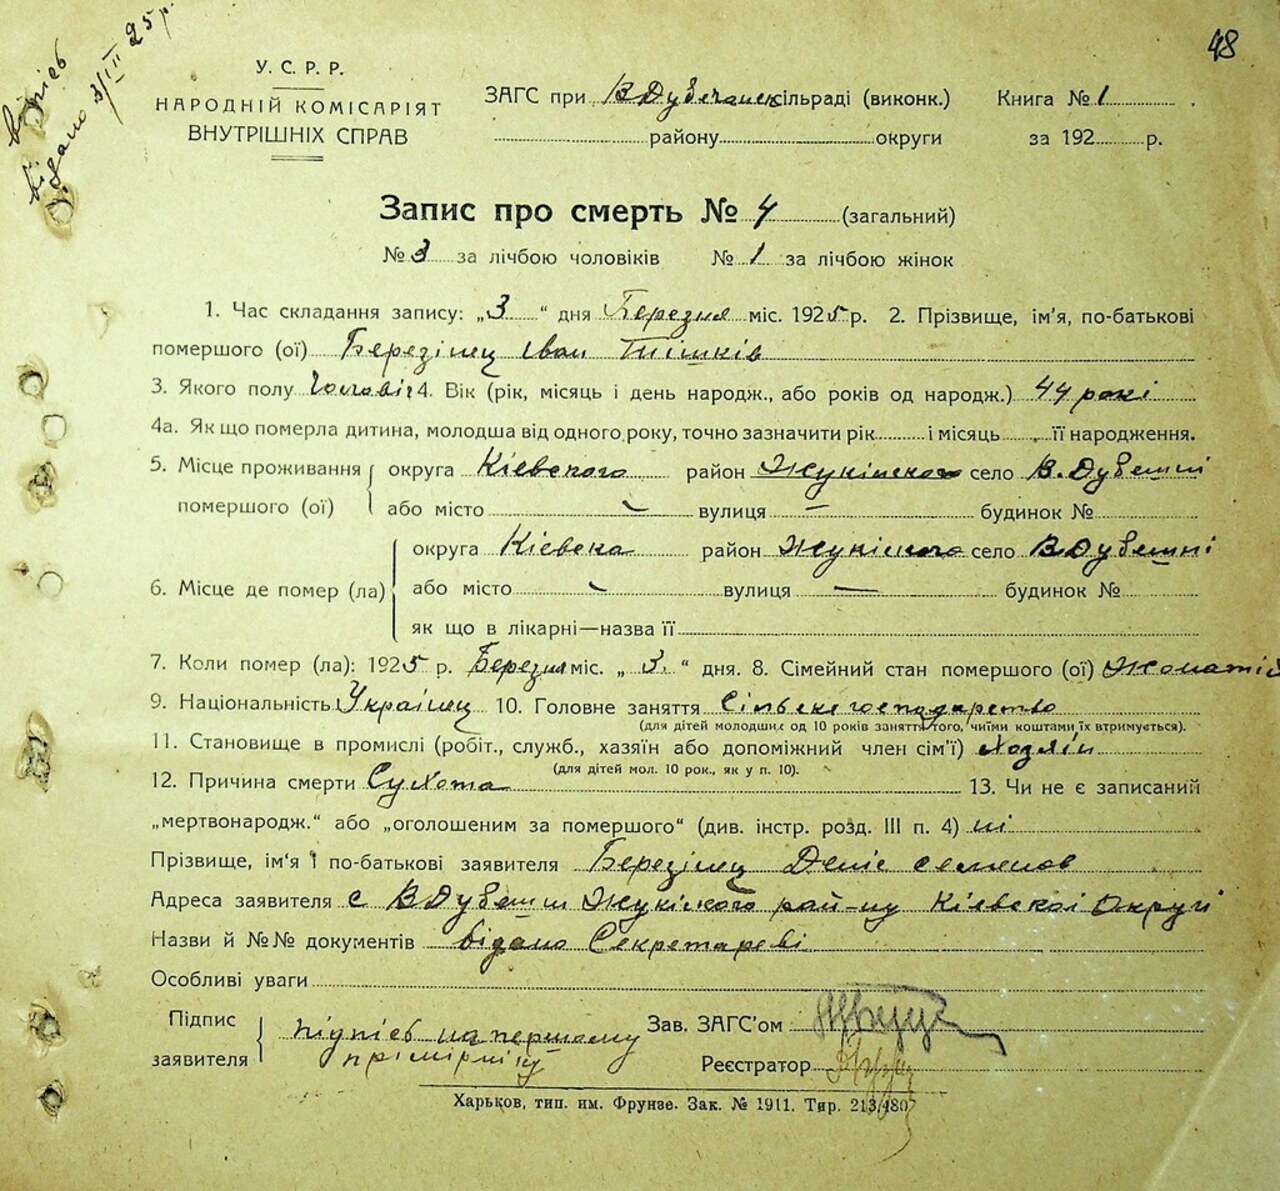 48
Випісь
видано 3/III 25 р.
У. С. Р. Р.
НАРОДНІЙ КОМІСАРІЯТ
ВНУТРІШНІХ СПРАВ
ЗАГС при В Дубечанск ільраді (виконк.) Книга № 1
району округи за 192 р.
Запис про смерть № 4 (загальний)
№ 3 за лічбою чоловіків № 1 за лічбою жінок
1. Час складання запису: „3“ дня Березня міс. 1925 р. 2. Прізвище, ім'я, по-батькові
помершого (ої) Березінец Іван Тішків
3. Якого полу Чоловіч 4. Вік (рік, місяць і день народж., або років од народж.) 44 рокі
4а. Як що померла дитина, молодша від одного року, точно зазначити рік і місяць її народження.
5. Місце проживання помершого (ої) округа Кіевского район Жукінского село В. Дубешні
або місто вулиця — будинок №
6. Місце де помер (ла) округа Кіевска район Жукінского село В Дубешні
або місто вулиця — будинок №
як що в лікарні—назва її
7. Коли помер (ла): 1925 р. Березня міс. „3.“ дня. 8. Сімейний стан помершого (ої) Жонатій
9. Національність Українец 10. Головне заняття Сільске господарство
(для дітей молодших од 10 років заняття того, чиїми коштами їх втримується).
11. Становище в промислі (робіт., служб., хазяїн або допоміжний член сім'ї) хозяін
(для дітей мол. 10 рок., як у п. 10).
12. Причина смерти Сухота 13. Чи не є записаний
„мертвонародж.“ або „оголошеним за помершого“ (див. інстр. розд. III п. 4) ні
Прізвище, ім'я і по-батькові заявителя Березінец Деніс семенов
Адреса заявителя с В Дубешні Жукінского рай-ну Кіевскоі Округі
Назви й №№ документів відано Секретареві
Особливі уваги
Підпис заявителя підпісь на першому Зав. ЗАГС'ом
прімірніку Реєстратор
Харьков, тип. им. Фрунзе. Зак. № 1911. Тир. 213/480